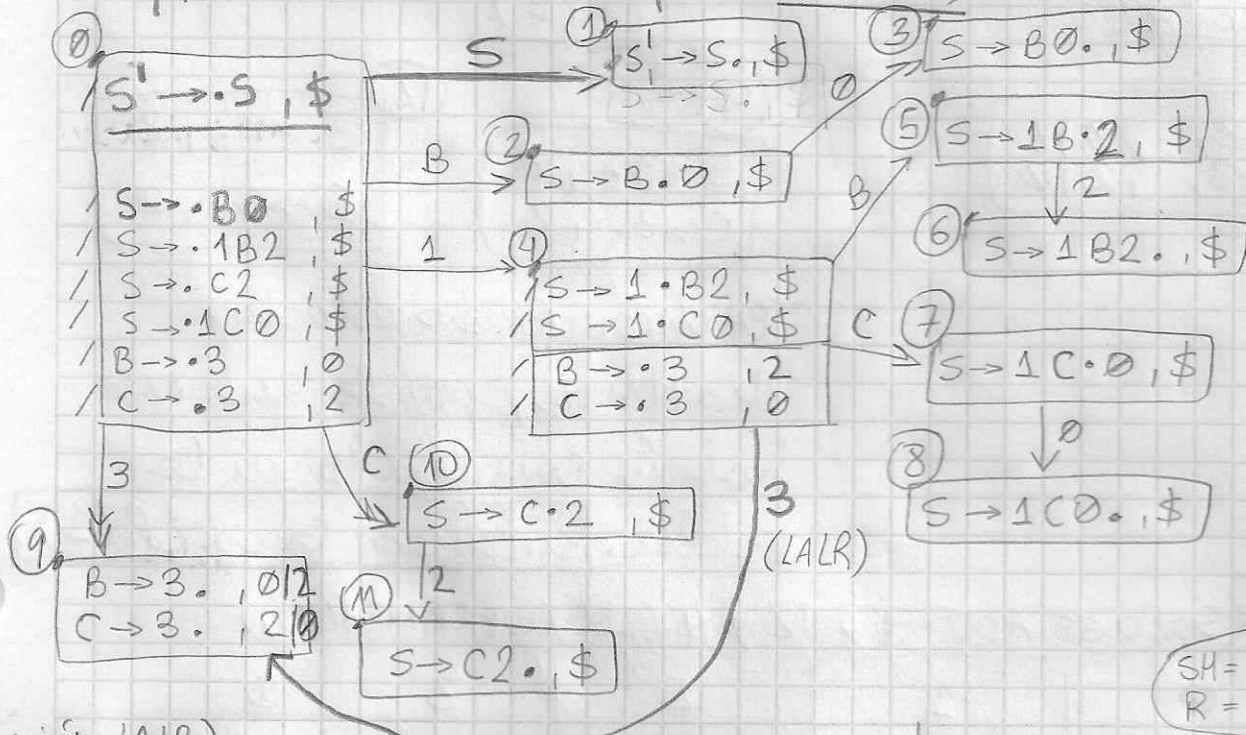 0
S' → .S , $
S → .B0 , $
S → .1B2 , $
S → .C2 , $
S → .1C0 , $
B → .3 , 0
C → .3 , 2
S
1
S' → S. , $
B
2
S → B.0 , $
0
3
S → B0. , $
1
4
S → 1.B2 , $
S → 1.C0 , $
B → .3 , 2
C → .3 , 0
B
5
S → 1B.2 , $
2
6
S → 1B2. , $
C
7
S → 1C.0 , $
0
8
S → 1C0. , $
3
9
B → 3. , 0|2
C → 3. , 2|0
C
10
S → C.2 , $
2
11
S → C2. , $
3
(LALR)
SH =
R =
LALR)